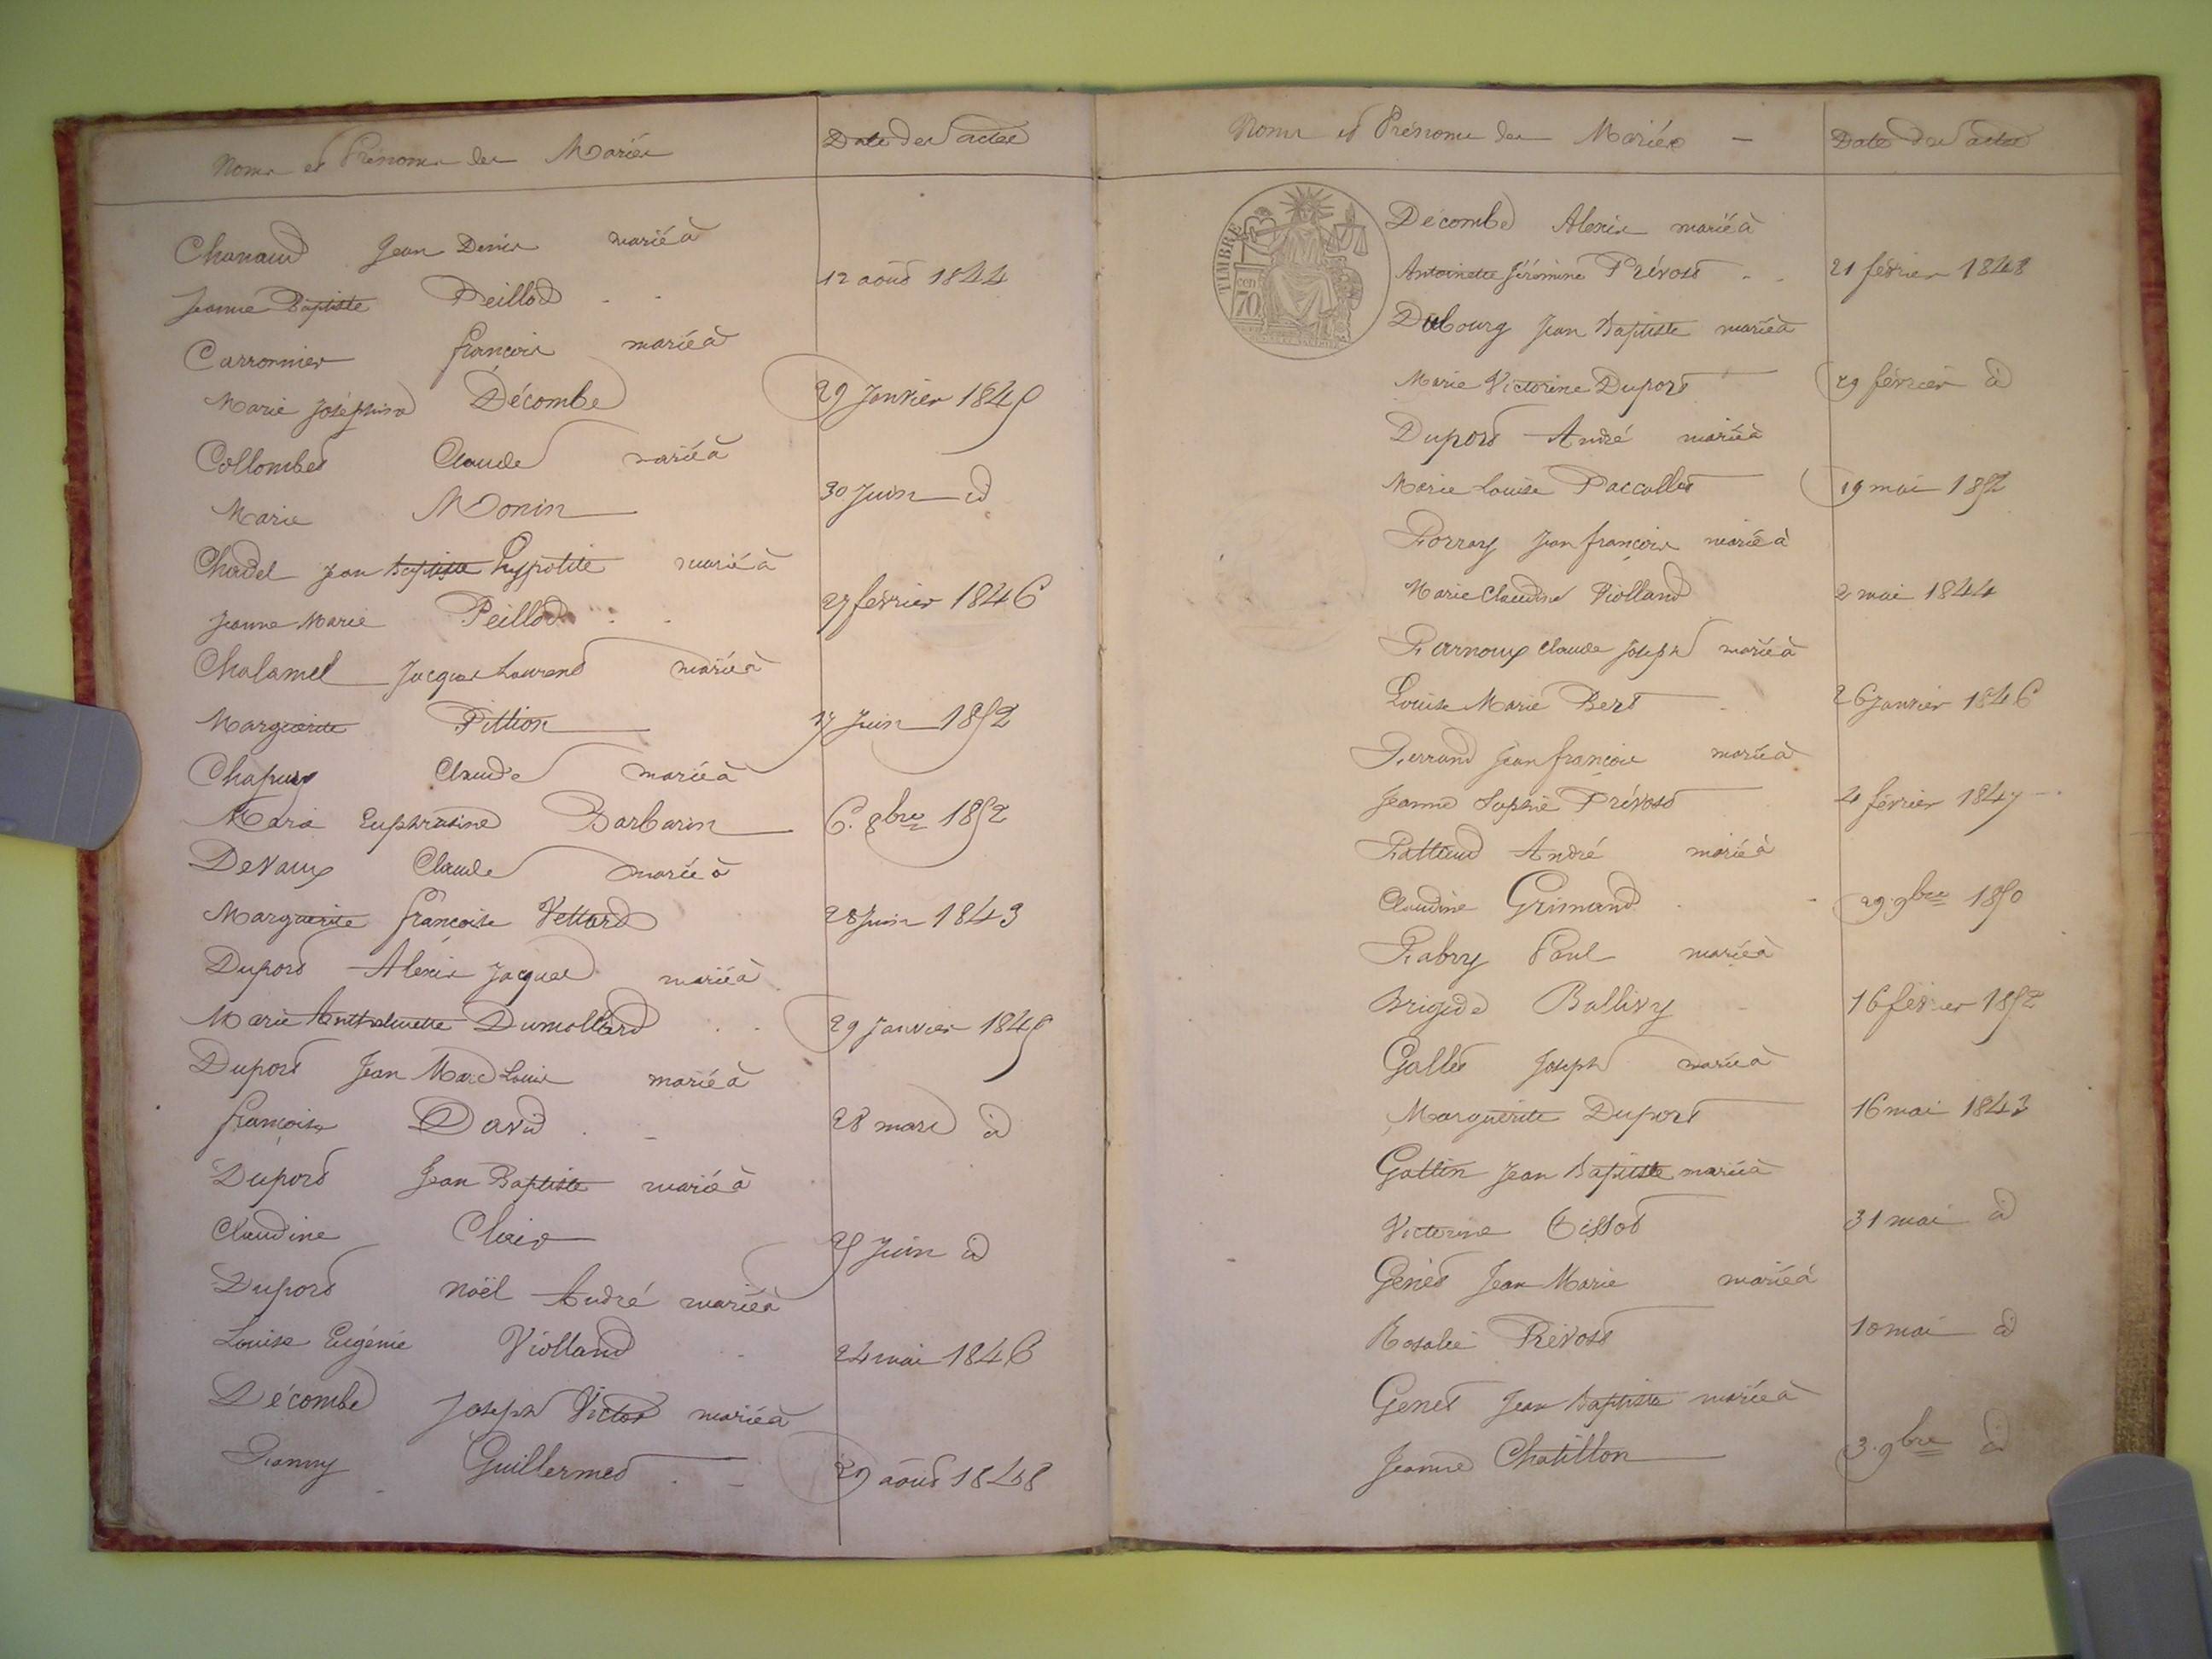 Noms et Prénoms des Mariés Date des actes
Chanaud Jean Denis marié à
Jeanne Baptiste Peillod 12 août 1844
Carronnier françois marié à
Marie Joséphine Décombe 29 Janvier 1845
Collombet Claude marié à
Marie Monin 30 Juin id
Chadel Jean Baptiste hyppolite marié à
Jeanne Marie Peillod 27 février 1846
Chalamel Jacques Laurent marié à
Marguerite Pittion 17 Juin 1852
Chapuy Claude marié à
Marie Euphrasine Barbarin 6. 8bre 1852
Devaux Claude marié à
Marguerite françoise Vettard 28 Juin 1843
Duport Alexis Jacques marié à
Marie Anthelmette Dumollard 29 Janvier 1845
Duport Jean Marc Louis marié à
françoise David 28 mars id
Duport Jean Baptiste marié à
Claudine Clair 25 Juin id
Duport Noël André marié à
Louise Eugénie Violland 24 mai 1846
Décombe Joseph Victor marié à
Fanny Guillermet 29 août 1848
Noms et Prénoms des Mariés – Date des actes
TIMBRE
70 cen
Décombe Alexis marié à
Antoinette Jéromine Prévost 21 février 1848
Dubourg Jean Baptiste marié à
Marie Victorine Duport 29 février id
Duport André marié à
Marie Louise Paccallet 19 mai 1852
Forray Jean françois marié à
Marie Claudine Violland 2 mai 1844
Farnoux Claude Joseph marié à
Louise Marie Bert 26 Janvier 1846
Ferrand Jean françois marié à
Jeanne Sophie Prévost 4 février 1847
Fattend André marié à
Claudine Grimand 29. 9bre 1850
Fabry Paul marié à
Brigide Ballivy 16 février 1852
Gallet Joseph marié à
Marguerite Duport 16 mai 1843
Gottin Jean Baptiste marié à
Victorine Tissot 31 mai id
Génet Jean Marie marié à
Rosalie Prévost 10 mai id
Genet Jean Baptiste marié à
Jeanne Chatillon 3. 9bre id